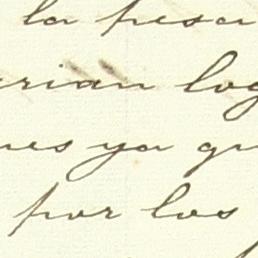 la pesa
rian log
ues ya qu
por los